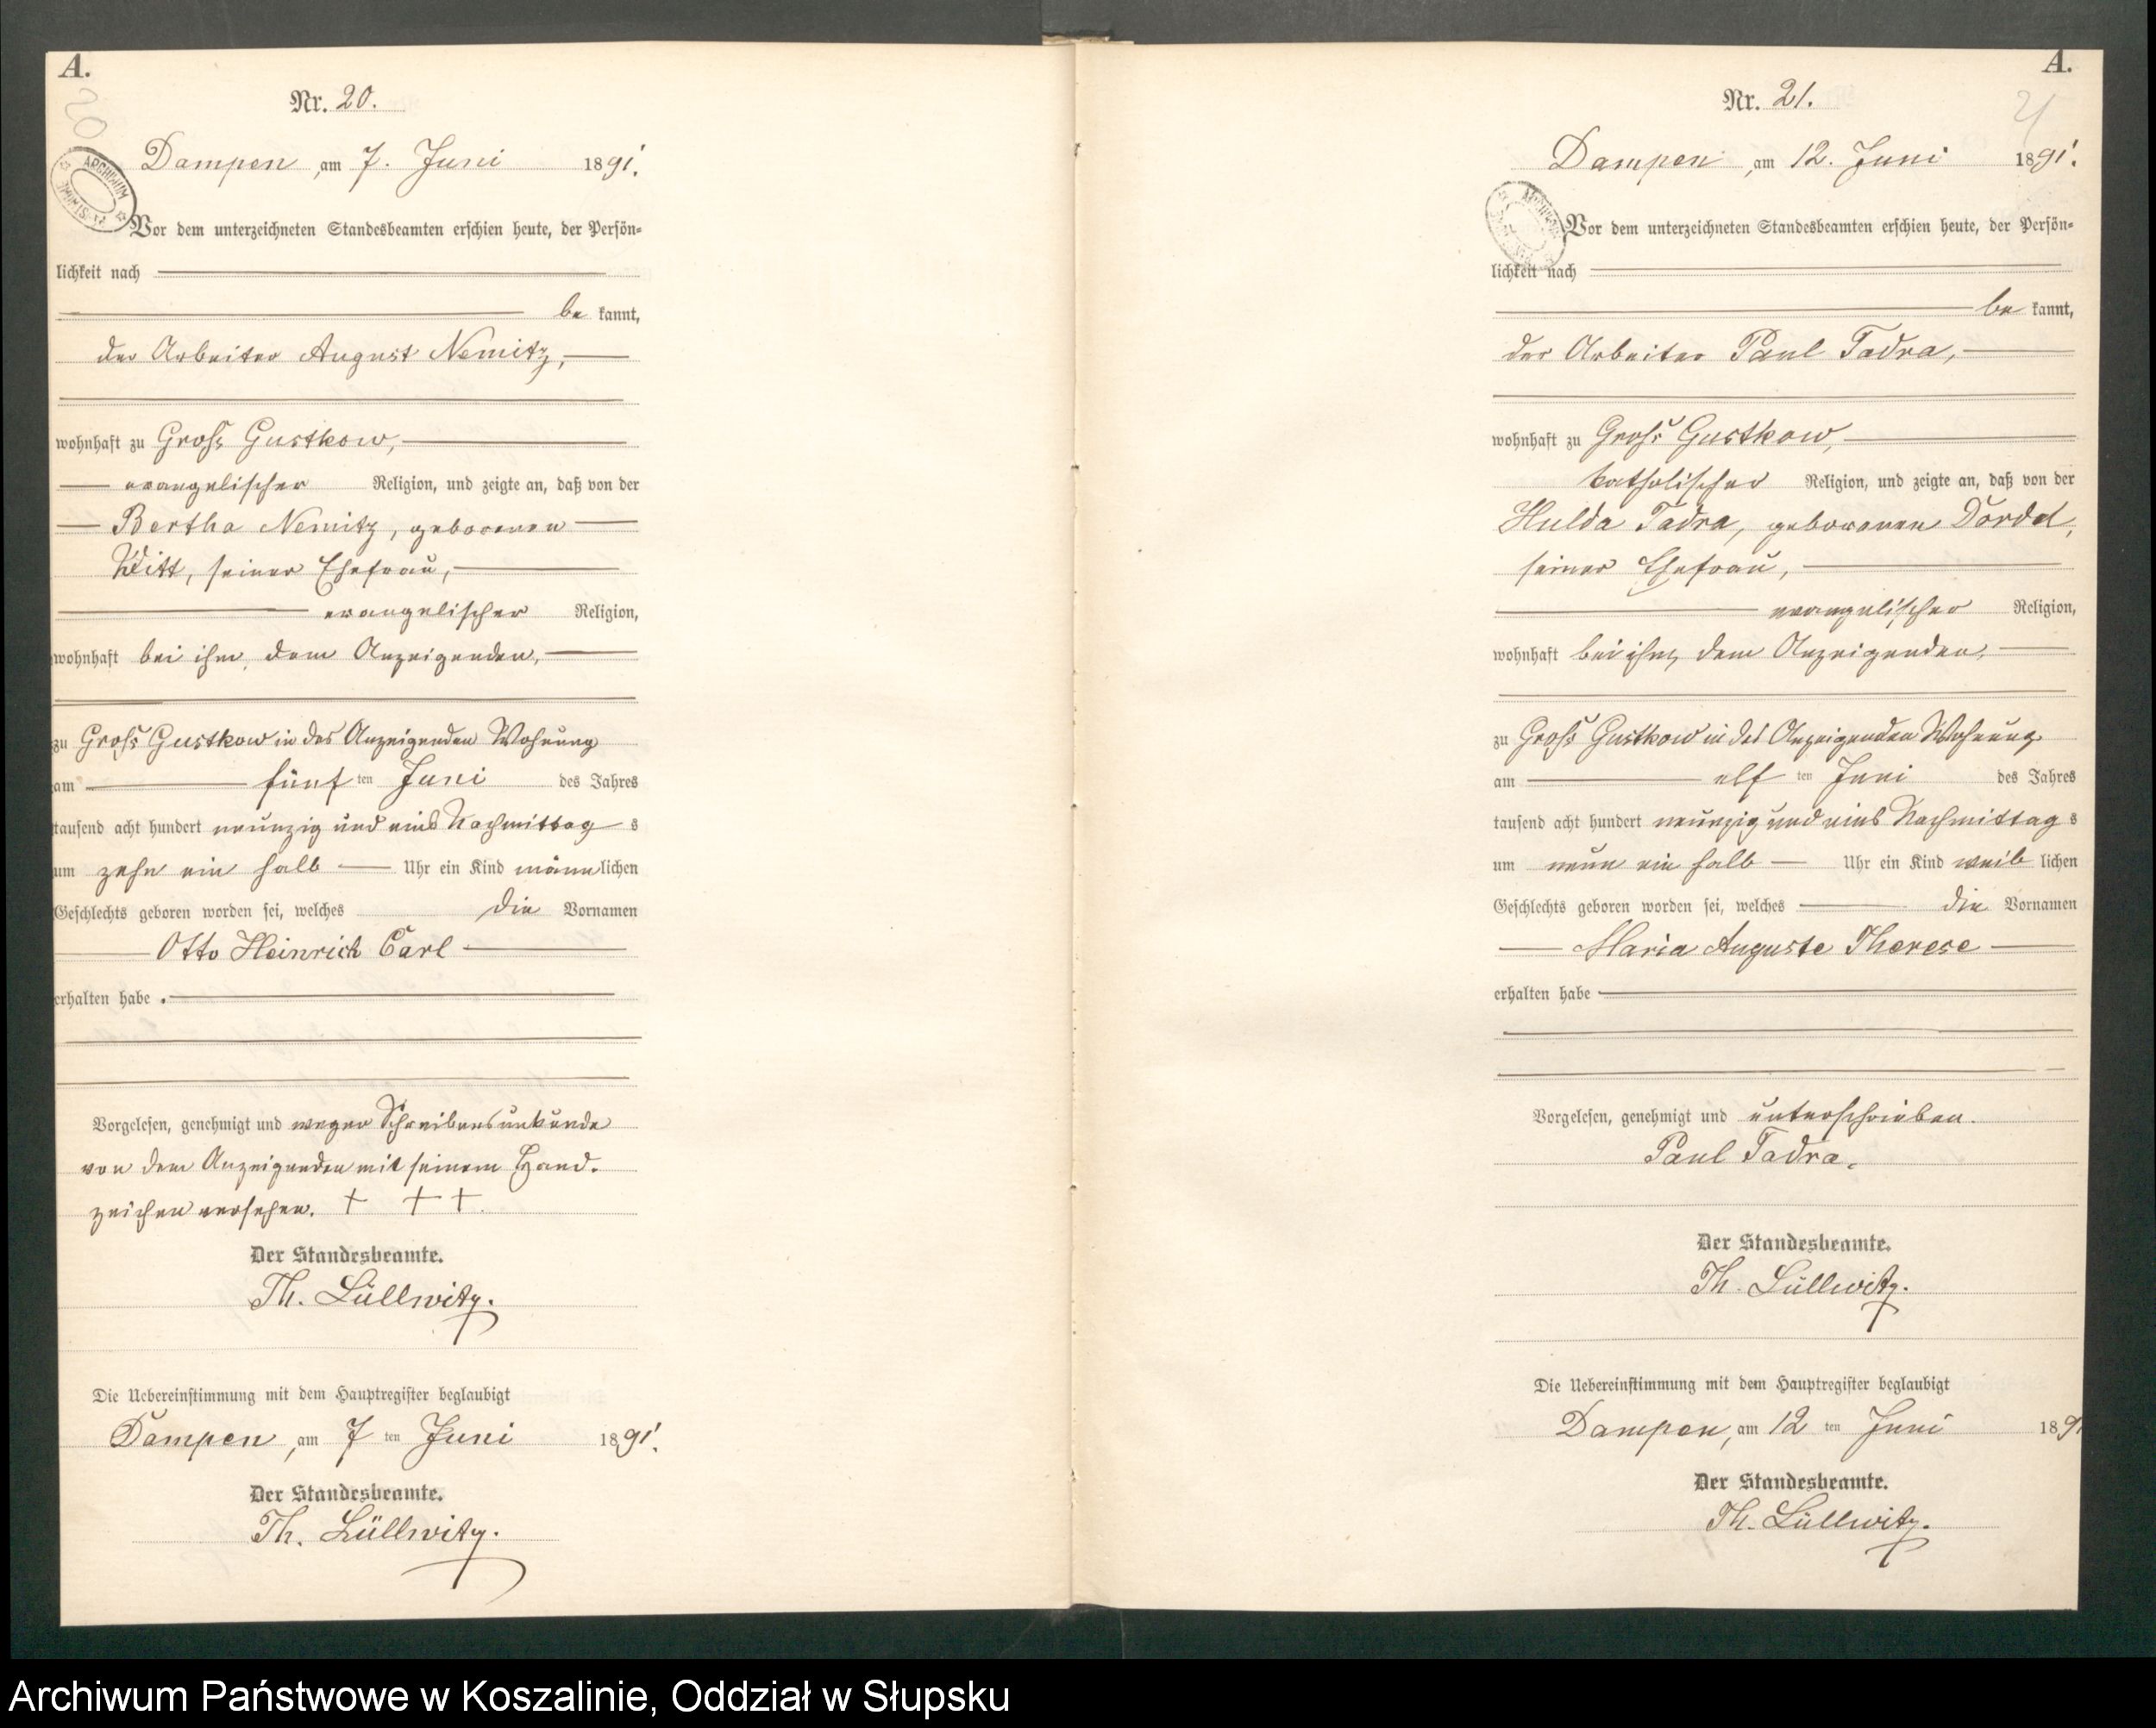 A.
20
Nr. 20.
Dampen, am 7. Juni 1891.
ARCHIWUM
Vor dem unterzeichneten Standesbeamten erschien heute, der Persön=
lichkeit nach
be kannt,
der Arbeiter August Nemitz,
wohnhaft zu Groß Gustkow,
evangelischer Religion, und zeigte an, daß von der
Bertha Nemitz, geborenen
Witt, seiner Ehefrau,
evangelischer Religion,
wohnhaft bei ihm, dem Anzeigenden,
zu Groß Gustkow in des Anzeigenden Wohnung
am fünf ten Juni des Jahres
tausend acht hundert neunzig und eins Nachmittag s
um zehn ein halb Uhr ein Kind männlichen
Geschlechts geboren worden sei, welches die Vornamen
Otto Heinrich Carl
erhalten habe.
Vorgelesen, genehmigt und wegen Schreibensunkunde
von dem Anzeigenden mit seinem Hand-
zeichen versehen. + + +
Der Standesbeamte.
Th. Lüllwitz.
Die Uebereinstimmung mit dem Hauptregister beglaubigt
Dampen, am 7 ten Juni 1891.
Der Standesbeamte.
Th. Lüllwitz.
A.
21
Nr. 21.
Dampen, am 12. Juni 1891.
Vor dem unterzeichneten Standesbeamten erschien heute, der Persön=
lichkeit nach
be kannt,
der Arbeiter Paul Tadra,
wohnhaft zu Groß Gustkow,
katholischer Religion, und zeigte an, daß von der
Hulda Tadra, geborenen Dördel,
seiner Ehefrau,
evangelischer Religion,
wohnhaft bei ihm, dem Anzeigenden,
zu Groß Gustkow in des Anzeigenden Wohnung
am elf ten Juni des Jahres
tausend acht hundert neunzig und eins Nachmittag s
um neun ein halb Uhr ein Kind weib lichen
Geschlechts geboren worden sei, welches die Vornamen
Maria Auguste Therese
erhalten habe
Vorgelesen, genehmigt und unterschrieben.
Paul Tadra.
Der Standesbeamte.
Th. Lüllwitz.
Die Uebereinstimmung mit dem Hauptregister beglaubigt
Dampen, am 12 ten Juni 189
Der Standesbeamte.
Th. Lüllwitz.
Archiwum Państwowe w Koszalinie, Oddział w Słupsku